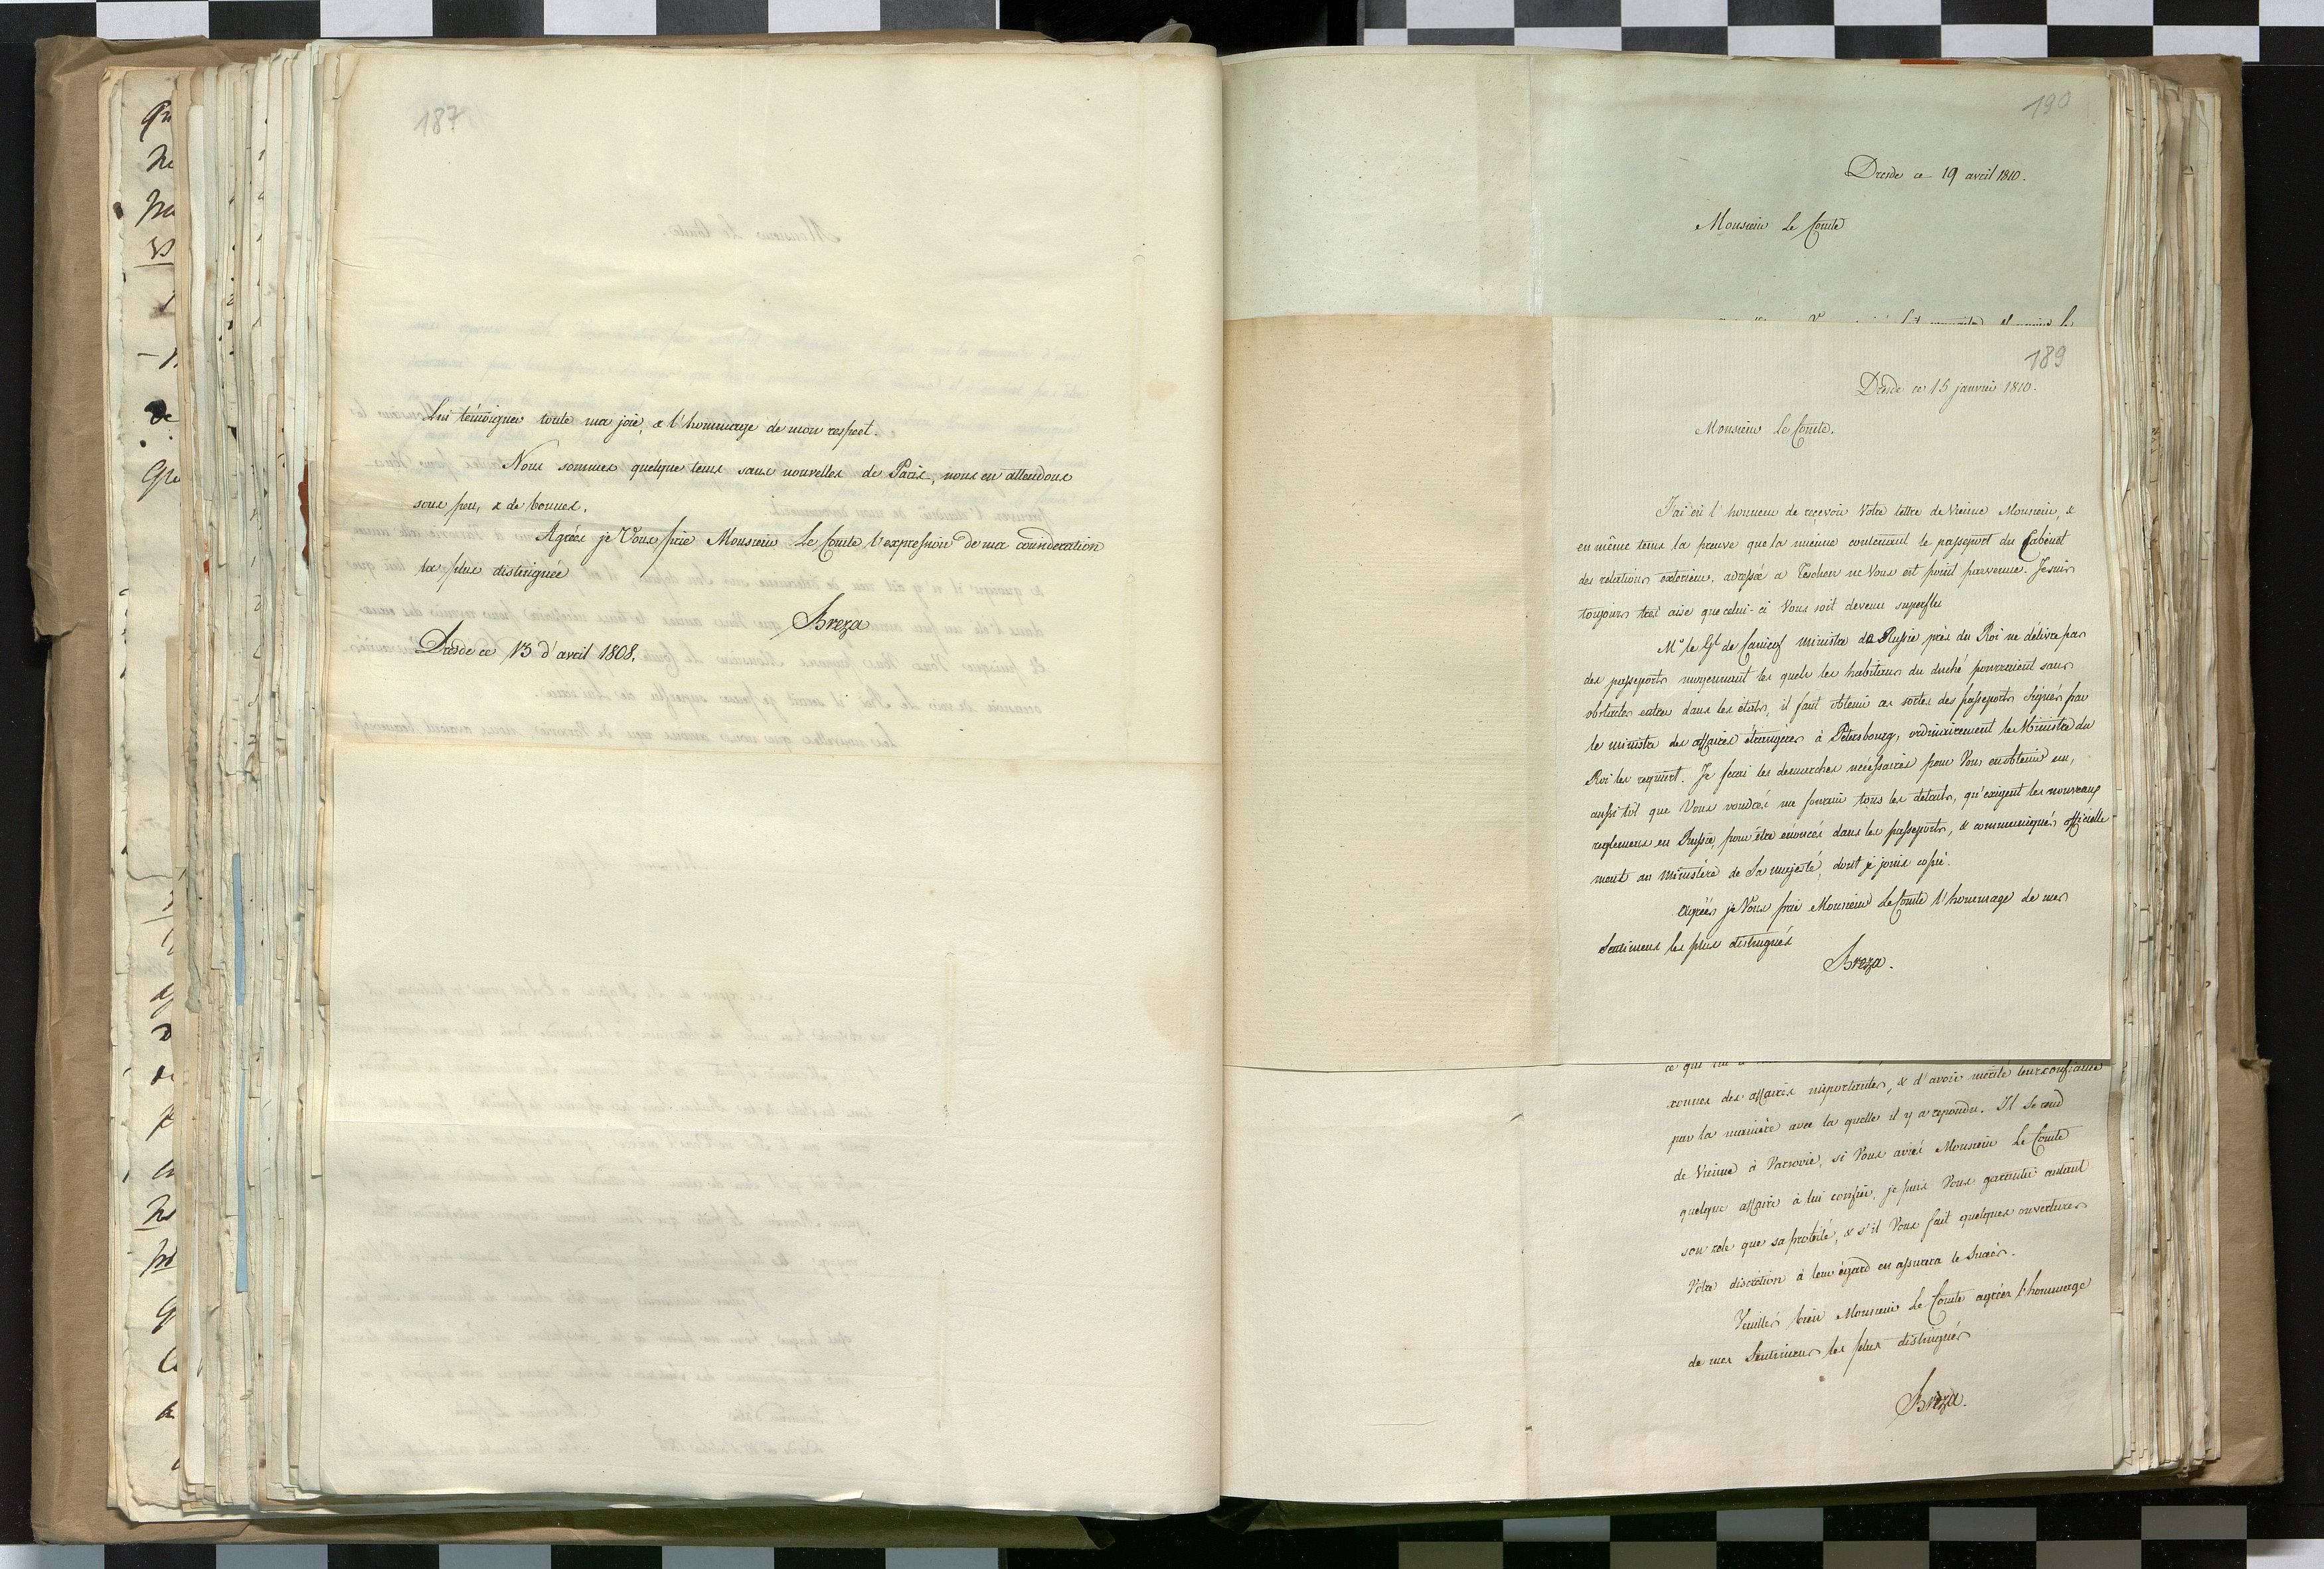 187
Lui témoigner toute ma joie, & l'hommage de mon respect.
Nous sommes quelque tems sans nouvelles de Paris, nous en attendons
sous peu, & de bonnes.
Agréés je Vous prie Monsieur Le Comte l'expression de ma consideration
la plus distinguée
Breza
Dresde ce 13 d'avril 1808.
190
Dresde ce 19 avril 1810.
Monsieur Le Comte
189
Dresde ce 15 janvier 1810.
Monsieur Le Comte.
J'ai eû l'honneur de reçevoir Votre lettre de Vienne Monsieur, &
en même tems la preuve que la mienne contenant le passeport du Cabinet
des relations exterieur, adressé a Teschen ne Vous est point parvenue. Je suis
toujours très aise que celui-ci Vous soit devenu superflu
Mr le Gl de ministre de Russie près du Roi ne délivre pas
des passeports moyennant les quels les habitans du duché pourroient sans
obstacles entrer dans les états, il faut obtenir ces sortes des passeports signés par
le ministre des affaires étrangeres à Petersbourg, ordinairement le Ministre du
Roi les requiert. Je ferai les demarches nécessaires pour Vous en obtenir un,
aussi tôt que Vous voudrés me fournir tous les details, qu'exigent les nouveaux
reglemens en Russie, pour être enoncés dans les passeports, & communiqués officielle
ment au ministére de Sa majesté, dont je joins copie.
Agréés je Vous prie Monsieur Le Comte l'hommage de mes
Sentimens les plus distingués
Breza.
ce qui
ronnes des affaires importantes, & d'avoir mérité leur confiance
par la manière avec la quelle il y a repondu. Il se rend
de Vienne à Varsovie, si Vous aviés Monsieur Le Comte
quelque affaire à lui confier, je puis Vous garantir autant
son zele que sa probité, & s'il Vous fait quelques ouvertures
Votre discrétion à leur égard en assurera le Succès.
Veuillés bien Monsieur Le Comte agréer l'hommage
de mes Sentimens les plus distingués
Breza.